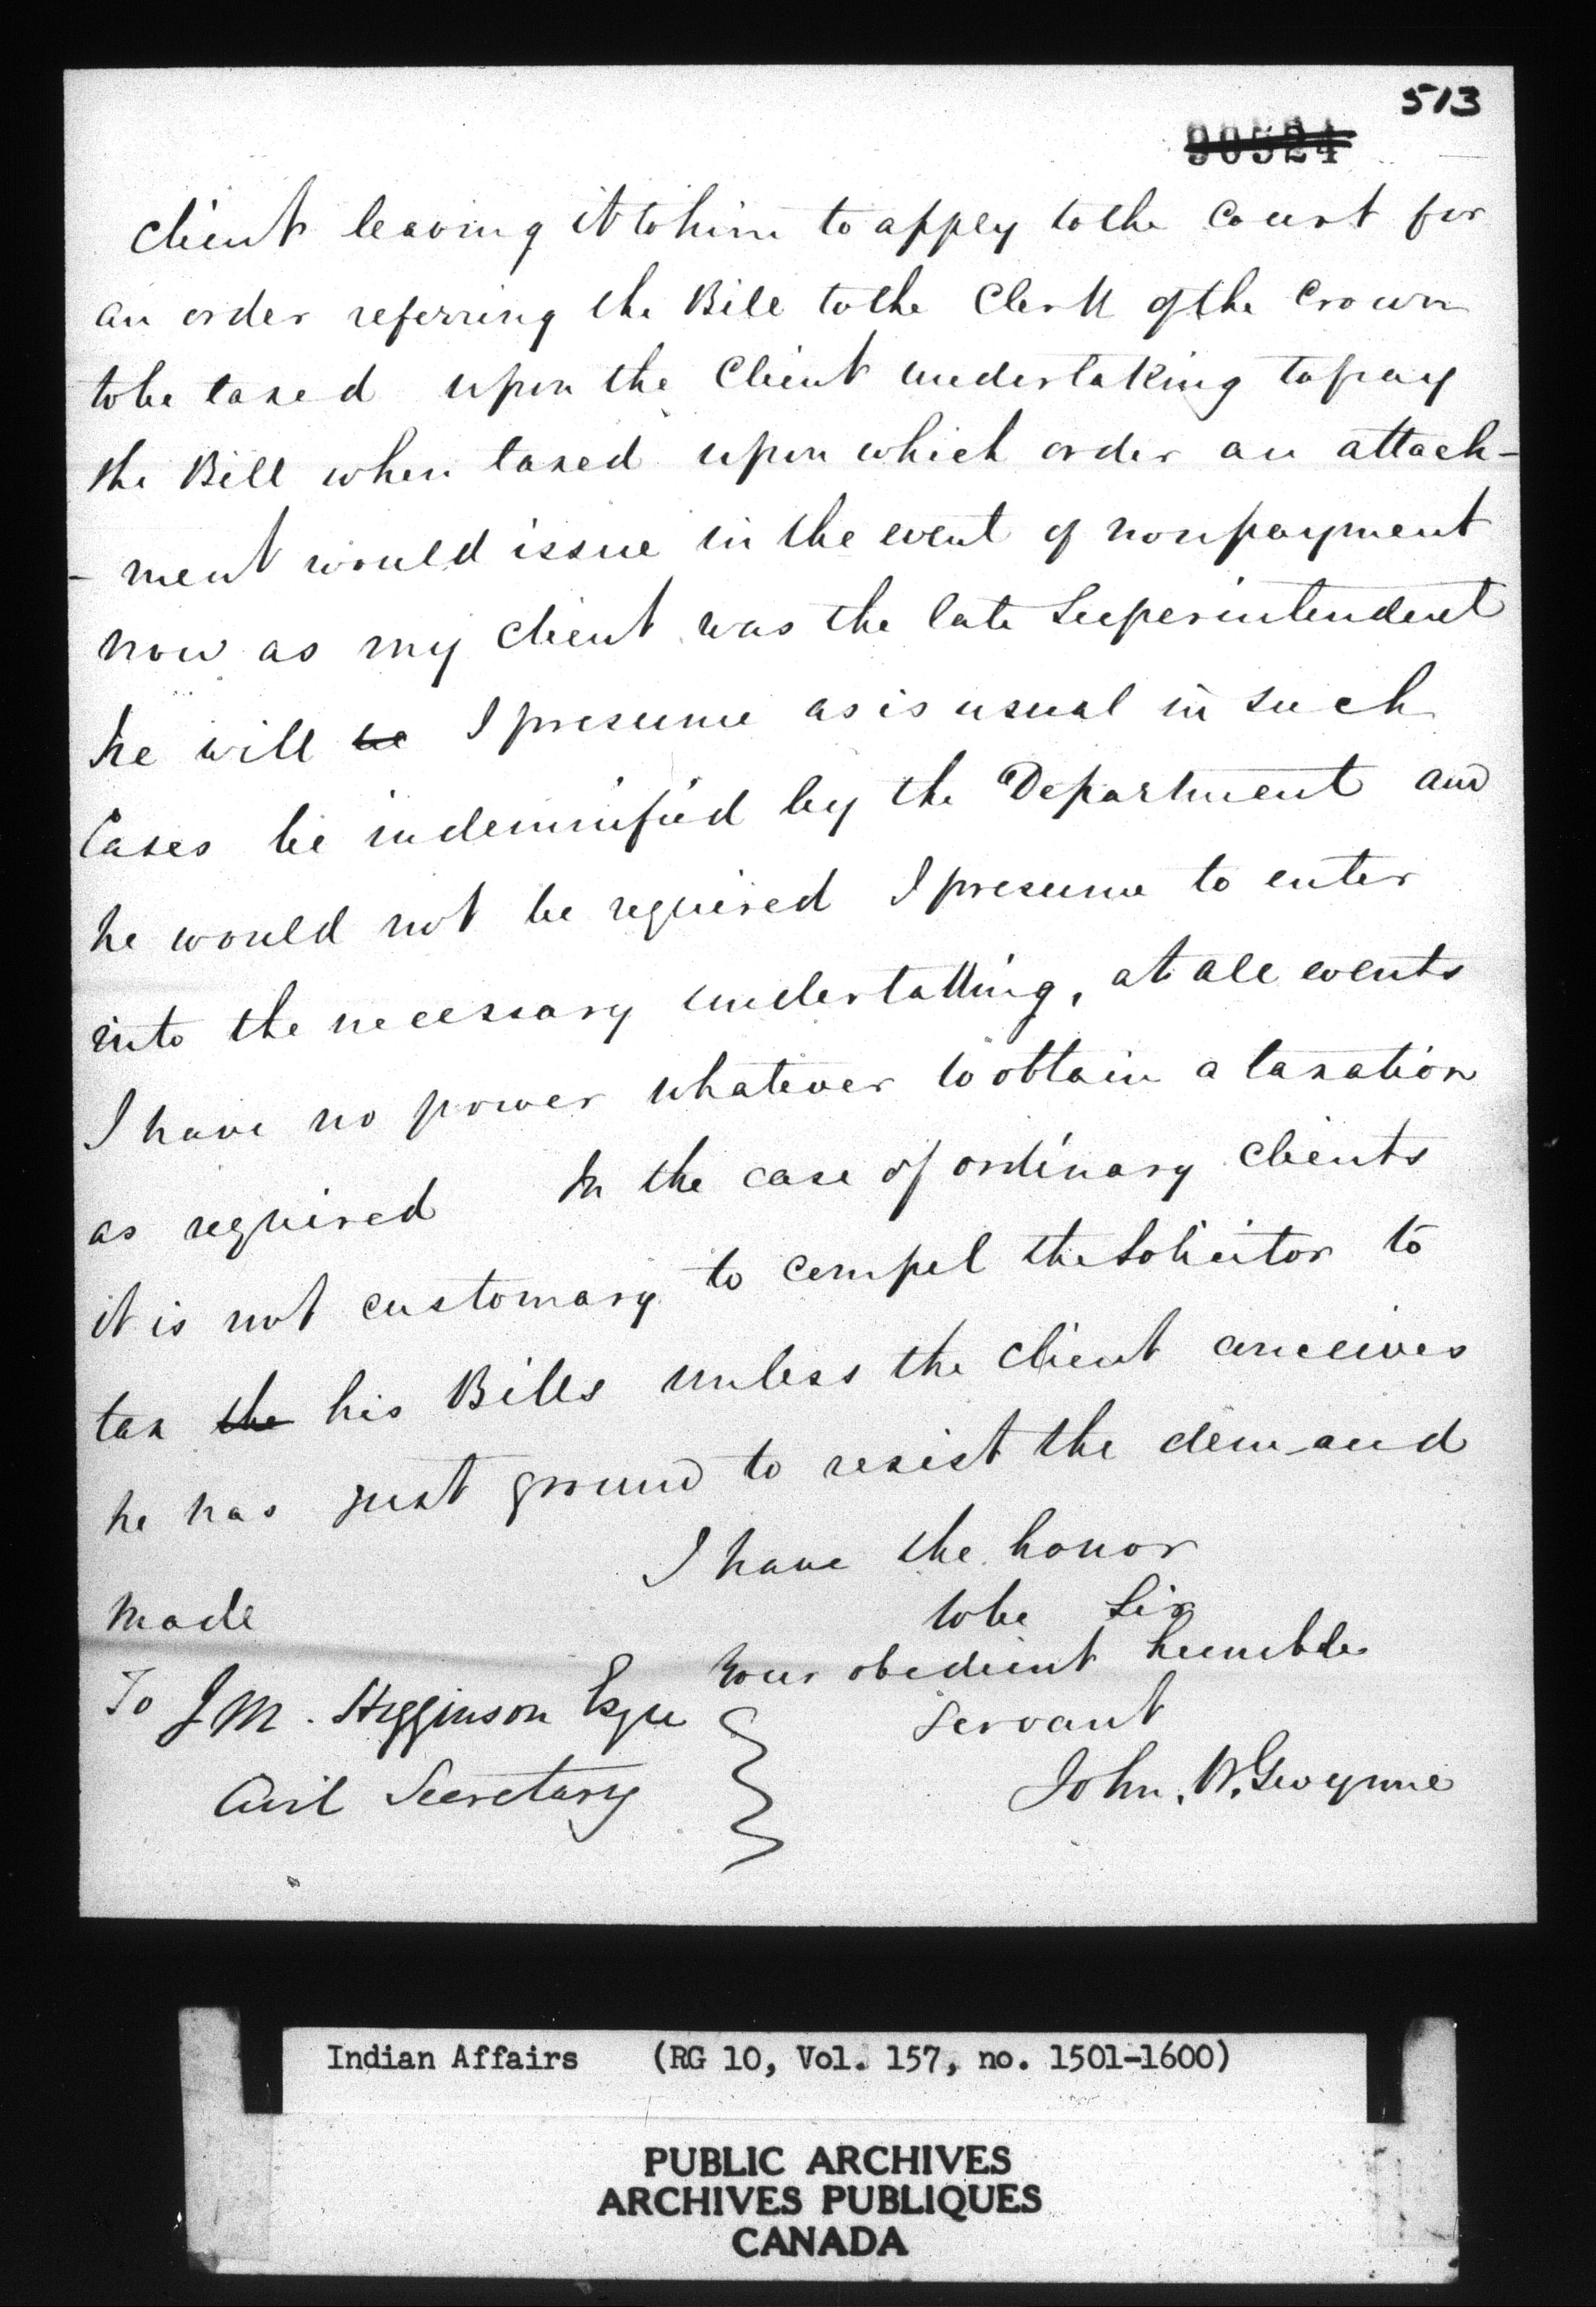 513
90524
client leaving it to him to apply to the Court for
an order referring the Bill to the Clerk of the Crown
to be taxed upon the Client undertaking to pay
the Bill when taxed upon which order an attach-
- ment would issue in the event of nonpayment
now as my client was the late Superintendent
he will be I presume as is usual in such
Cases be indemnified by the Department and
he would not be required I presume to enter
into the necessary undertaking, at all events
I have no power whatever to obtain a taxation
as required In the case of ordinary clients
it is not customary to compel the Solicitor to
tax the his Bills unless the client conceives
he has just ground to resist the demand
made
I have the honor
to be Sir
Your obedient humble
Servant
John. W. Gwynne
To J M. Higginson Esqre
Civil Secretary
Indian Affairs (RG 10, Vol. 157, no. 1501-1600)
PUBLIC ARCHIVES
ARCHIVES PUBLIQUES
CANADA